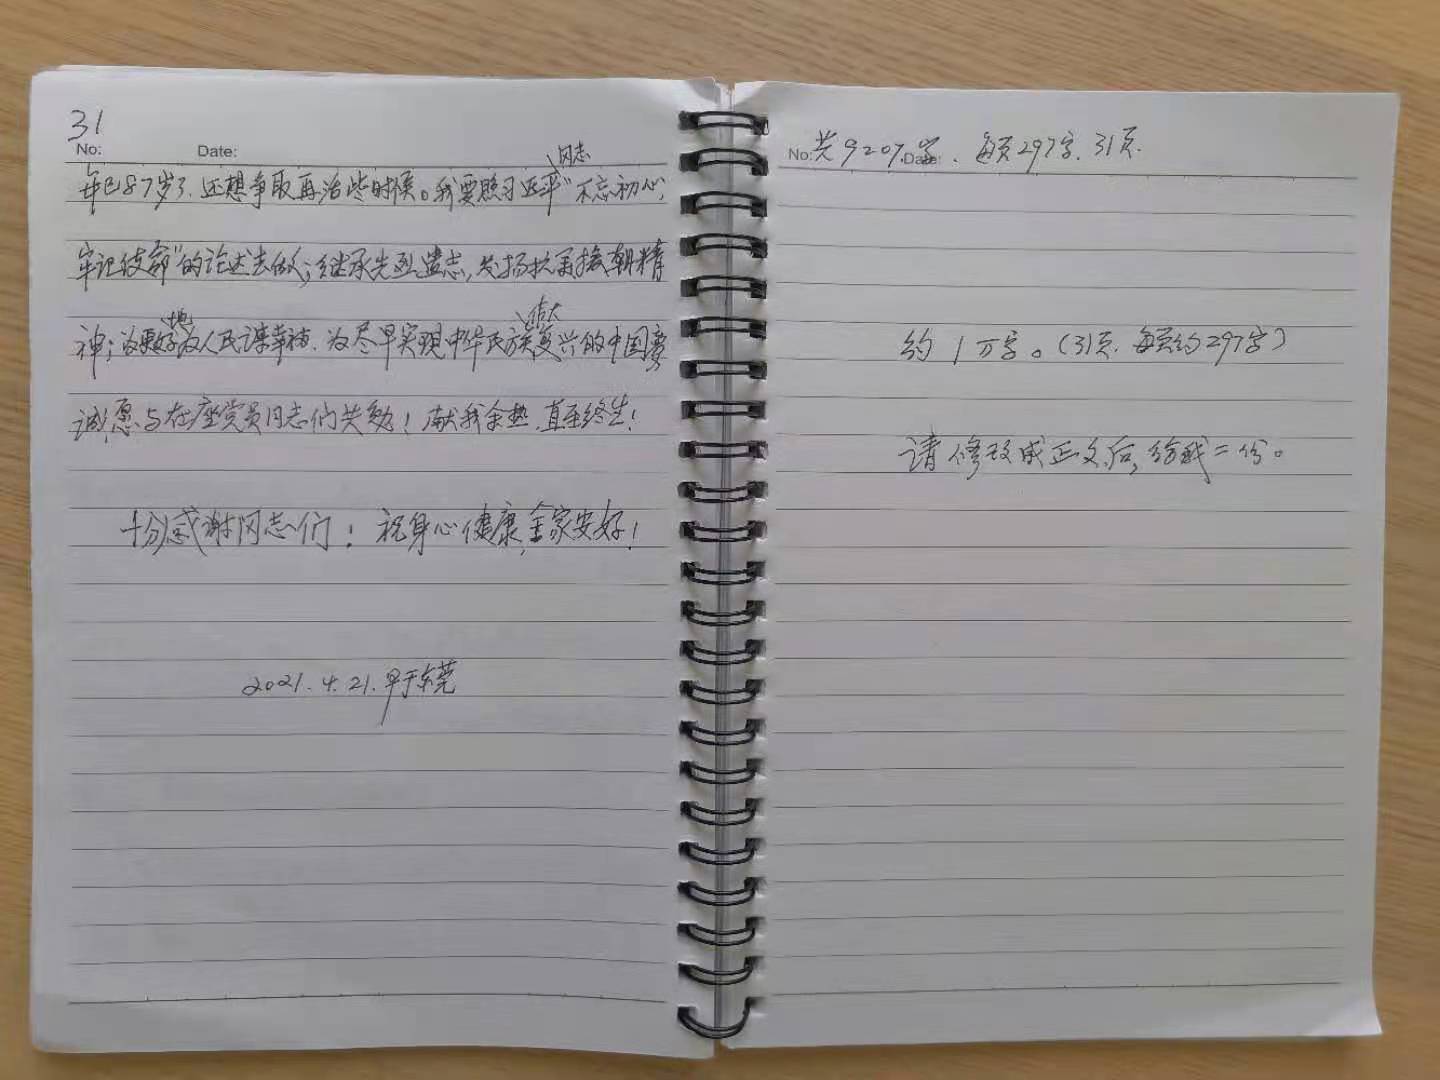 31
No:
Date:
同志
年已87岁了、还想争取再活些时候。我要照习近平"不忘初心,
牢记使命"的论述去做人;继承先烈遗志,发扬抗美援朝精
地 伟大
神;为更好为人民谋幸福、为尽早实现中华民族复兴的中国梦
诚愿与在座党员同志们共勉!献我余热,直至终生!
十分感谢同志们!祝身心健康,全家安好!
2021.4.21.早于东莞
No: Date:
共9207字、每页297字、31页.
约1万字。(31页、每页约297字)
请修改成正文后,给我二份。